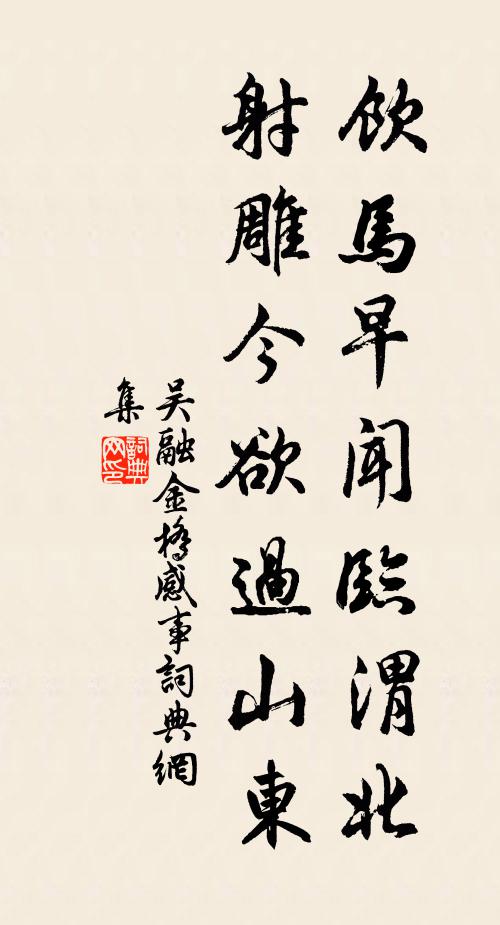 飲馬早聞臨渭北
射雕今欲過山東
吳融金橋感事詞典網
集
詞典
網印